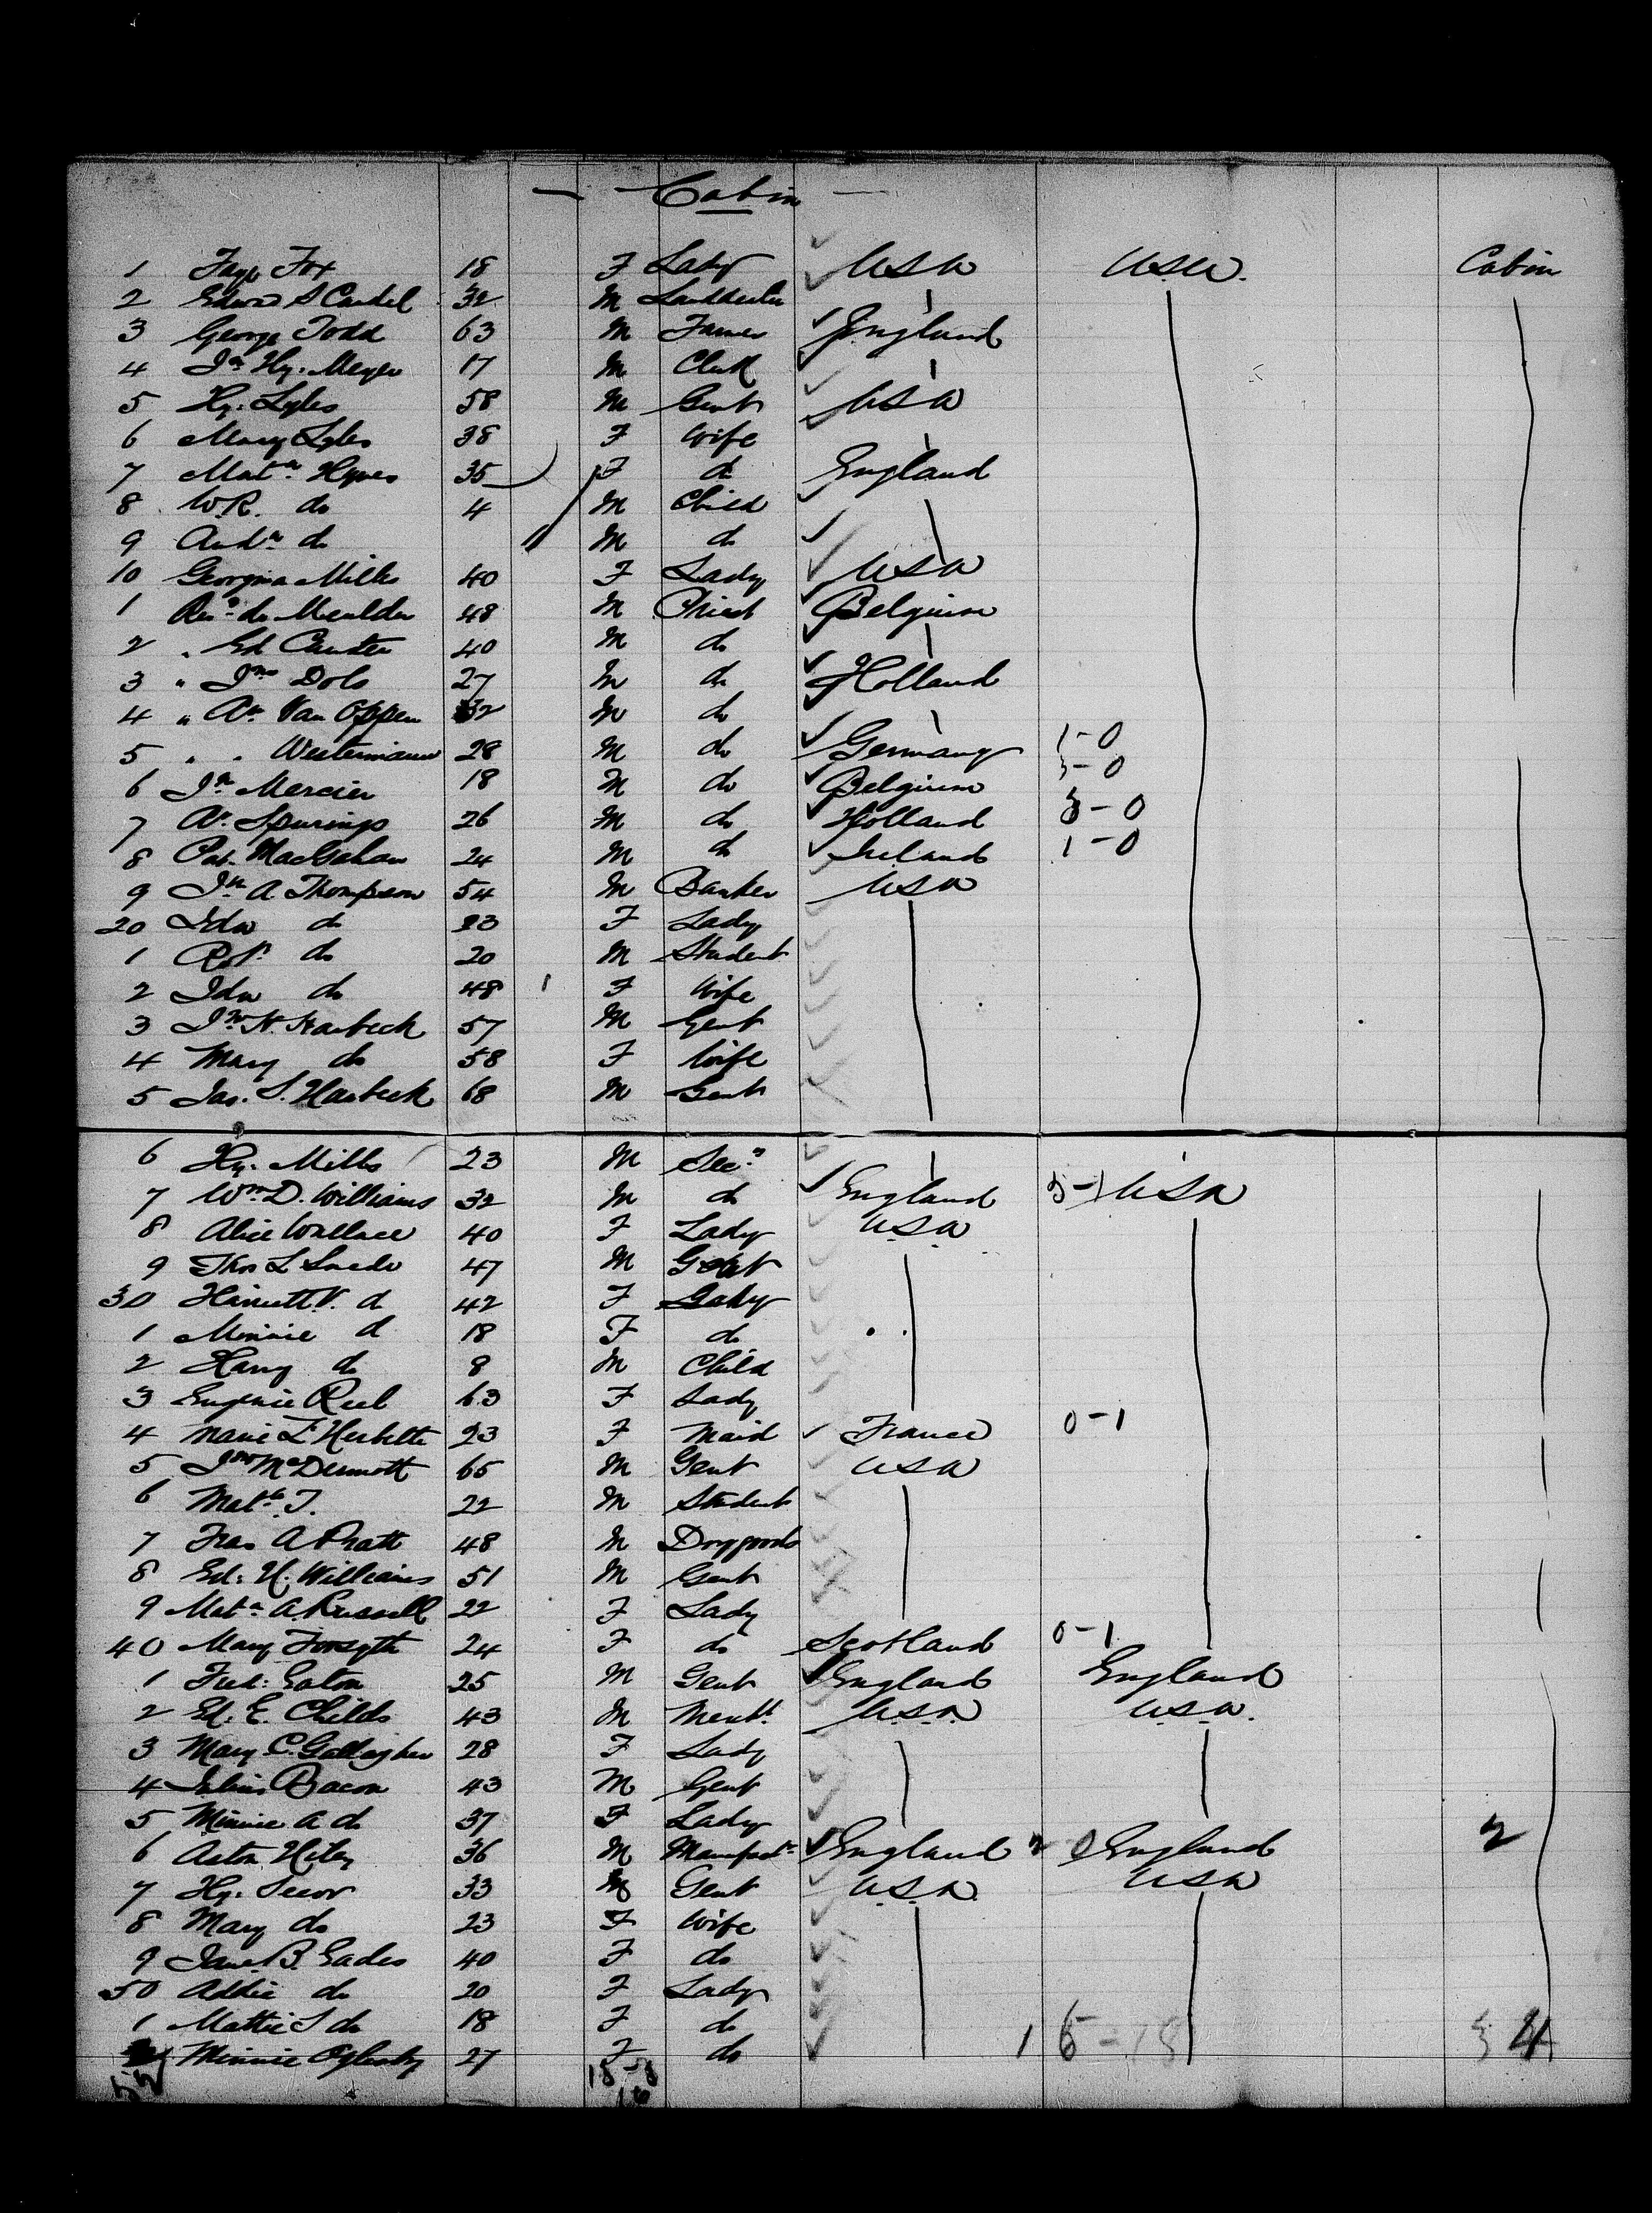 — Cabin —
1 Faye Fox 18 F Lady USA USA. Cabin
2 Edwd S Candel 32 M
3 George Todd 63 M Farmer England
4 Jn Hy. Meyer 17 M Clerk
5 Hy. Lyles 58 M Gent USA
6 Mary Lyles 38 F Wife
7 Hynes 35 F do England
8 W.R. do 4 M Child
9 Andw do M do
10 Georgina Mills 40 F Lady USA
1 Revd de Meulder 48 M Belgium
2 " Ed 40 M do
3 " Jno Dols 27 M do Holland
4 " Van Oppen 32 M do
5 " " Westermann 28 M do Germany 1-0
6 Jn Mercier 18 M do Belgium 3-0
7 Spurings 26 M do Holland 3-0
8 Pat. MacGahan 24 M do Ireland 1-0
9 Jn A. Thompson 54 M Banker USA
20 Ida do 23 F Lady
1 Robt do 20 M Student
2 Ida do 48 1 F Wife
3 Jno H. Harbeck 57 M Gent
4 Mary do 58 F Wife
5 Jas. S. Harbeck 68 M Gent
6 Hy. Mills 23 M Secy
7 Wm D. Williams 32 M do England USA
8 Alice Wallace 40 F Lady U.S.A.
9 Thos L 47 M Gent
30 Harriett V. d 42 F Lady
1 Minnie d 18 F do
2 Harry do 8 M Child
3 Eugenie Reel 63 F Lady
4 Marie L'Herbette 23 F Maid France 0-1
5 Jno McDermott 65 M Gent USA
6 T. 22 M Student
7 Fras A Pratt 48 M Drygoods
8 Ed: H. Williams 51 M Gent
9 A. Russell 22 F Lady
40 Mary Forsyth 24 F do Scotland 0-1
1 Fred: Eaton 25 M Gent England England
2 Ed. E. Childs 43 M Mercht U.S.A. U.S.A.
3 Mary C. Gallagher 28 F Lady
4 Julius Bacon 43 M Gent
5 Minnie A do 37 F Lady
6 Acton 36 M Manufactr England England 2
7 Hy. Secor 33 M Gent U.S.A. USA
8 Mary do 23 F Wife
9 Jane B. Eades 40 F do
50 Addie do 20 F Lady
1 Mattie S do 18 F do
Minnie Oglesby 27 F do
52 18